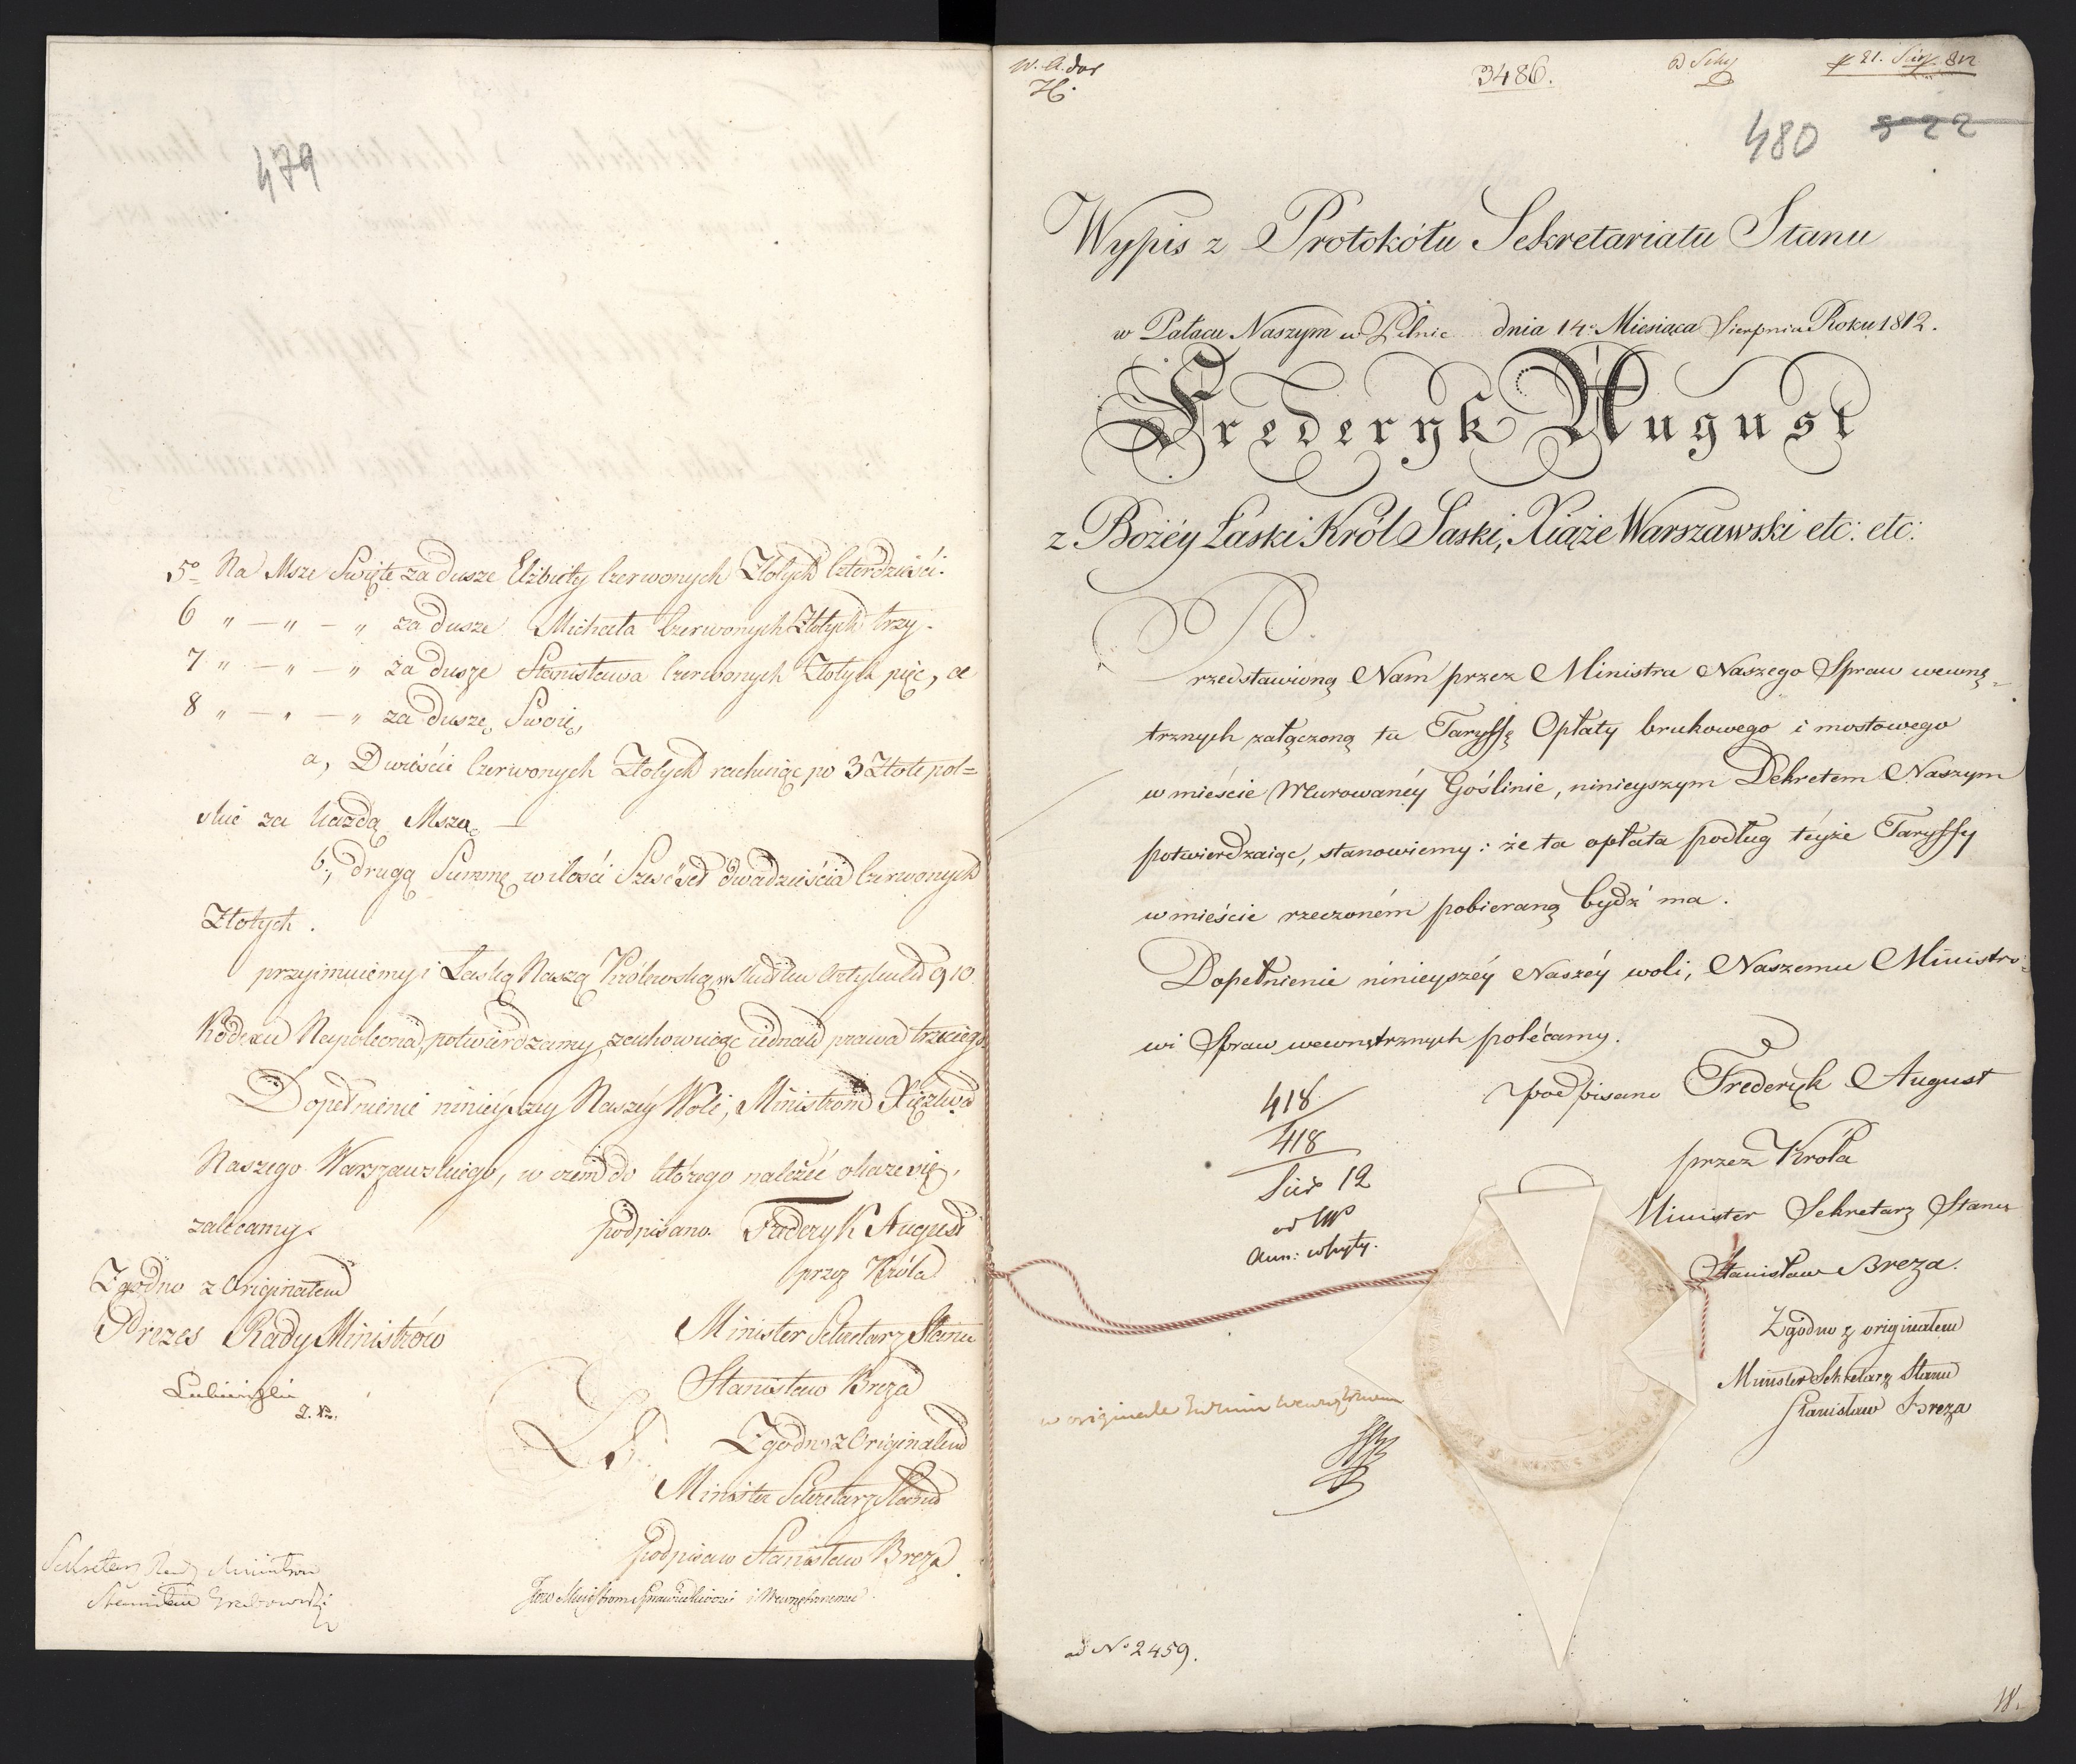 479
5º Na Msze Swięte za dusze Elżbiety Czerwonych Złotych Czterdzieści.
6 " — " — " za dusze Michała Czerwonych Złotych trzy.
7 " — " — " za dusze Stanisława Czerwonych Złotych pięć, a
8 " — " — " za duszę Swoię,
a, Dwieście Czerwonych Złotych rachuiąc po 3 Złote pol=
skie za każdą Mszę —
b, drugą Summę w ilości Sześćset dwadzieścia Czerwonych
Złotych.
przyimuiemy i Łaską Naszą Królewską w skutku Artykułu 910
Kodexu Napoleona, potwierdzamy, zachowuiąc iednak prawa trzeciego.
Dopełnienie ninieyszey Naszéy Woli, Ministrom Xięztwa
Naszego Warszawskiego, w czem do którego należeć okaże się,
zalecamy.
podpisano. Fryderyk August
przez Króla
Minister Sekretarz Stanu
Stanisław Breza
Zgodno z Originałem
Minister Sekretarz Stanu
podpisano Stanisław Breza.
Zgodno z Originałem
Prezes Rady Ministrów
Sekretarz Rady Ministrów
Stanisław Grabowski
3486.
480 522
Wypis z Protokółu Sekretariatu Stanu
w Pałacu Naszym w Pilnic dnia 14º Miesiąca Sierpnia Roku 1812.
Frederyk August
z Bożéy Łaski Król Saski, Xiąże Warszawski etc: etc:
Przedstawioną Nam przez Ministra Naszego Spraw wewnę=
trznych załączoną tu Taryffę Opłaty brukowego i mostowego
w mieście Murowanéy Goślinie, ninieyszym Dekretem Naszym
potwierdzaiąc, stanowiemy: że ta opłata podług téyże Taryffy
w mieście rzeczoném pobieraną bydź ma.
Dopełnienie ninieyszéy Naszéy woli, Naszemu Ministro=
wi Spraw wewnętrznych polécamy.
podpisano Frederyk August
przez Króla
Minister Sekretarz Stanu
Stanisław Breza.
Zgodno z originałem
Minister Sekretarz Stanu
Stanisław Breza
418
418
ad Nº 2459.
18.